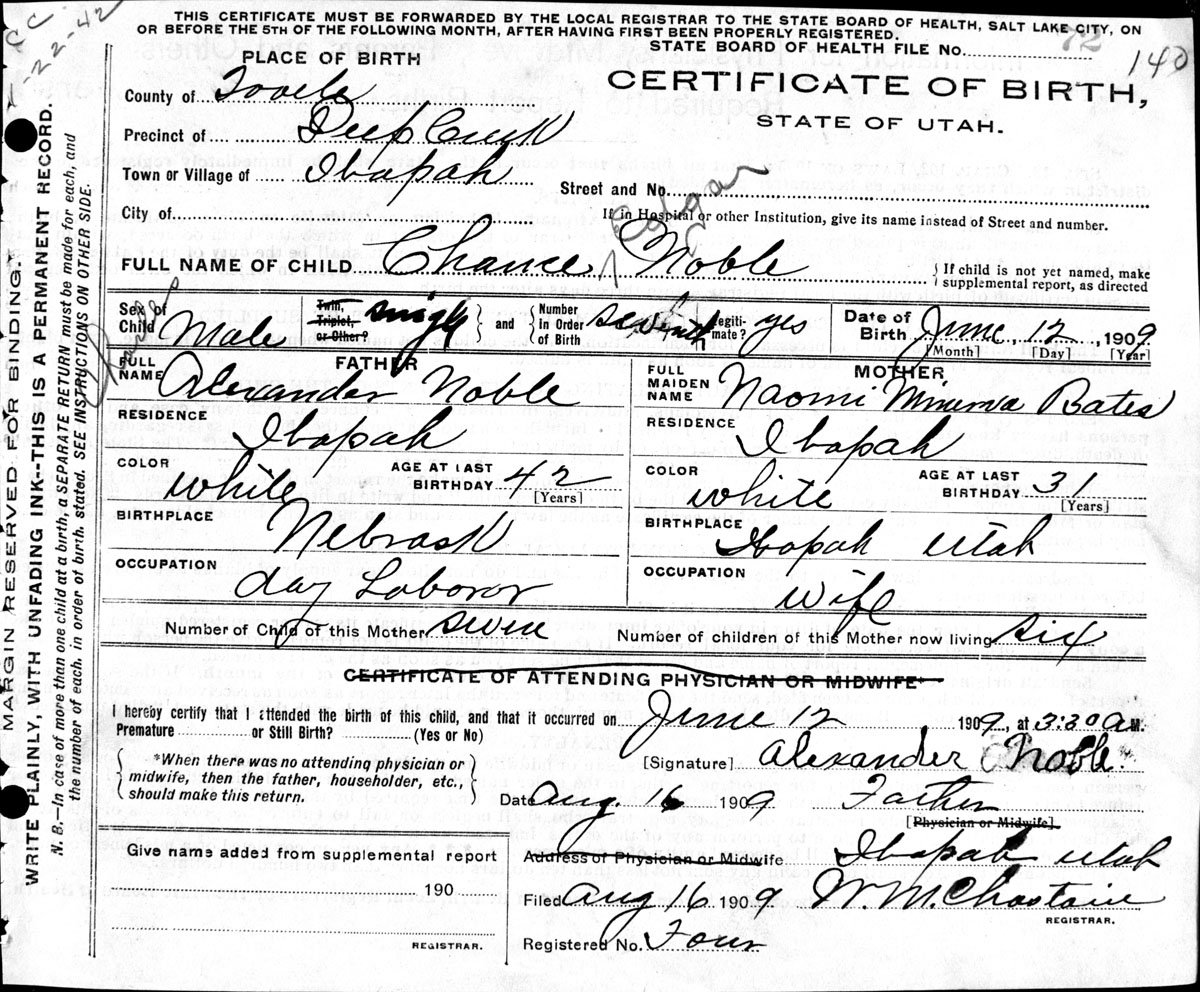 CC
22-42
THIS CERTIFICATE MUST BE FORWARDED BY THE LOCAL REGISTRAR TO THE STATE BOARD OF HEALTH, SALT LAKE CITY, ON
OR BEFORE THE 5TH OF THE FOLLOWING MONTH, AFTER HAVING FIRST BEEN PROPERLY REGISTERED.
STATE BOARD OF HEALTH FILE No. 72
140
PLACE OF BIRTH
CERTIFICATE OF BIRTH,
STATE OF UTAH.
County of Tooele
Precinct of Deep Creek
Town or Village of Ibapah
Street and No.
City of
If in Hospital or other Institution, give its name instead of Street and number.
Edgar
FULL NAME OF CHILD Chance Noble
{ If child is not yet named, make
supplemental report, as directed
Sex of Child Male
Twin, Triplet, or Other? single
and
Number In Order of Birth seventh
Legitimate? yes
Date of Birth June, 12, 1909
[Month] [Day] [Year]
FATHER
FULL NAME Alexander Noble
RESIDENCE Ibapah
COLOR white
AGE AT LAST BIRTHDAY 42 [Years]
BIRTHPLACE Nebrask
OCCUPATION day Laboror
MOTHER
FULL MAIDEN NAME Naomi Minerva Bates
RESIDENCE Ibapah
COLOR white
AGE AT LAST BIRTHDAY 31 [Years]
BIRTHPLACE Ibapah Utah
OCCUPATION wife
Number of Child of this Mother seven
Number of children of this Mother now living six
CERTIFICATE OF ATTENDING PHYSICIAN OR MIDWIFE*
I hereby certify that I attended the birth of this child, and that it occurred on June 12 1909, at 3:30 A.M.
Premature or Still Birth? (Yes or No)
*When there was no attending physician or
midwife, then the father, householder, etc.,
should make this return.
[Signature] Alexander Noble
Date Aug. 16 1909 Father
[Physician or Midwife]
Give name added from supplemental report
190
REGISTRAR.
Address of Physician or Midwife. Ibapah Utah
Filed Aug 16 1909 W. M. Chastain
REGISTRAR.
Registered No. Four
MARGIN RESERVED FOR BINDING.
WRITE PLAINLY, WITH UNFADING INK--THIS IS A PERMANENT RECORD.
N. B.—In case of more than one child at a birth, a SEPARATE RETURN must be made for each, and
the number of each, in order of birth, stated. SEE INSTRUCTIONS ON OTHER SIDE.